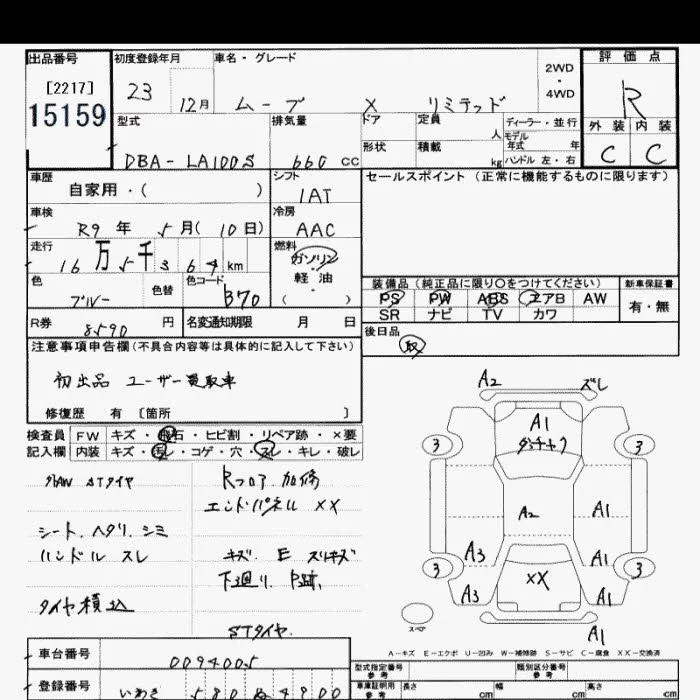 出品番号
[2217]
15159
初度登録年月
23
12月
車名・グレード
ムーブ X リミテッド
2WD
・
4WD
評価点
R
外装 内装
C C
型式
DBA-LA100S
排気量
660 cc
ドア
定員
人
ディーラー・並行
モデル
年式 年
形状
積載
kg
ハンドル 左・右
車歴
自家用・( )
シフト
IAT
セールスポイント (正常に機能するものに限ります)
車検
R9 年 5 月( 10 日)
冷房
AAC
走行
16 万 5 千 3 6 4 km
燃料
ガソリン
軽油
( )
色
ブルー
色替
色コード
B70
装備品 (純正品に限り○をつけてください)
新車保証書
PS PW ABS エアB AW
SR ナビ TV カワ
有・無
R券
8590 円
名変通知期限 月 日
後日品
取
注意事項申告欄 (不具合内容等は具体的に記入して下さい)
初出品 ユーザー買取車
修復歴 有 [箇所 ]
検査員
記入欄
FW キズ・飛石・ヒビ割・リペア跡・×要
内装 キズ・汚レ・コゲ・穴・スレ・キレ・破レ
STタイヤ
シート、ヘタリ、シミ
ハンドル スレ
タイヤ積込
Rフロア 加修
エンドパネル XX
キズ、E スリキズ
下廻り、P跡、
STタイヤ
A2 ズレ
A1
3 3
A2 A1
A3 A1
3 3
XX
A3 A1
A1
スペア
A-キズ E-エクボ U-凹み W-補修跡 S-サビ C-腐食 XX-交換済
車台番号
0094005
登録番号
いわき 580 4900
型式指定番号
参考
類別区分番号
参考
車庫証明用
参考
長さ cm
幅 cm
高さ cm